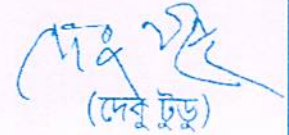 দেবু টুডু
(দেবু টুডু)